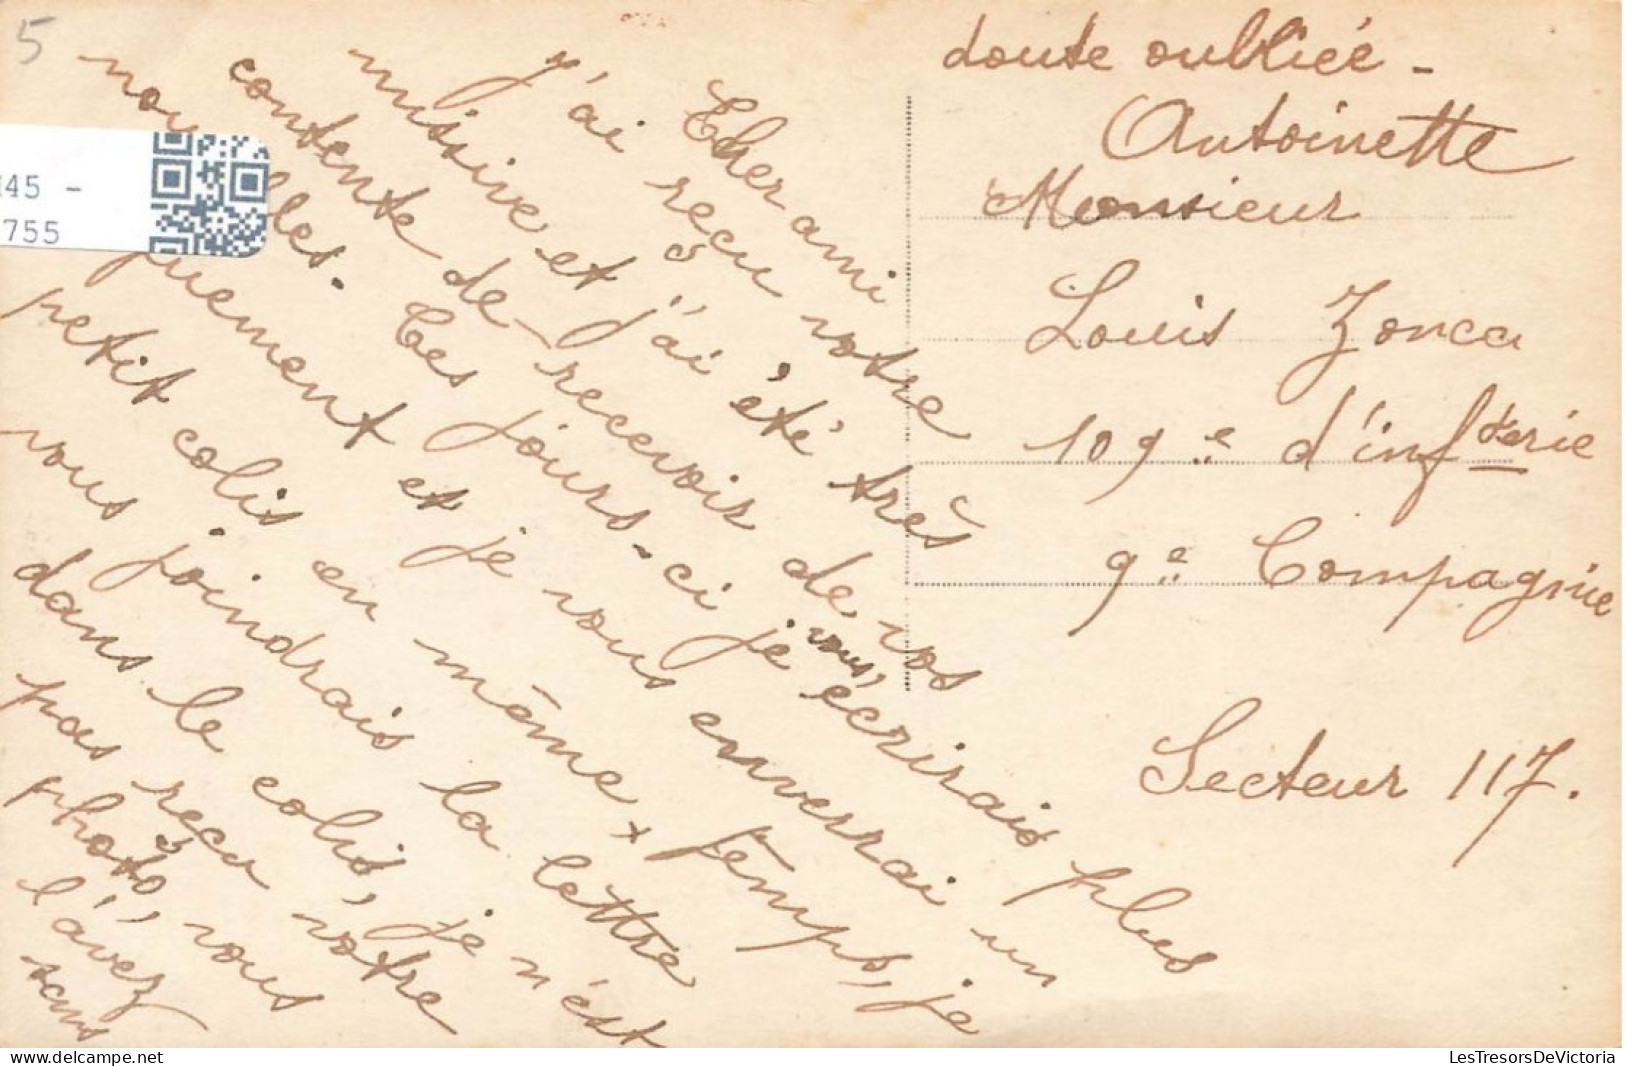 5
Cher ami
J'ai reçu votre
missive et j'ai été très
contente de recevoir de vos
nouvelles. Ces jours-ci je vous, écrirais plus
quement et je vous enverrai un
petit colis en même temps, je
vous joindrais la lettre
dans le colis, je n'est
pas reçu vôtre
photo, vous
l'avez
sans
doute oubliée -
Antoinette
Monsieur
Louis Zonca
109e d'infterie
9e Compagnie
Secteur 117.
145 -
755
LesTresorsDeVictoria